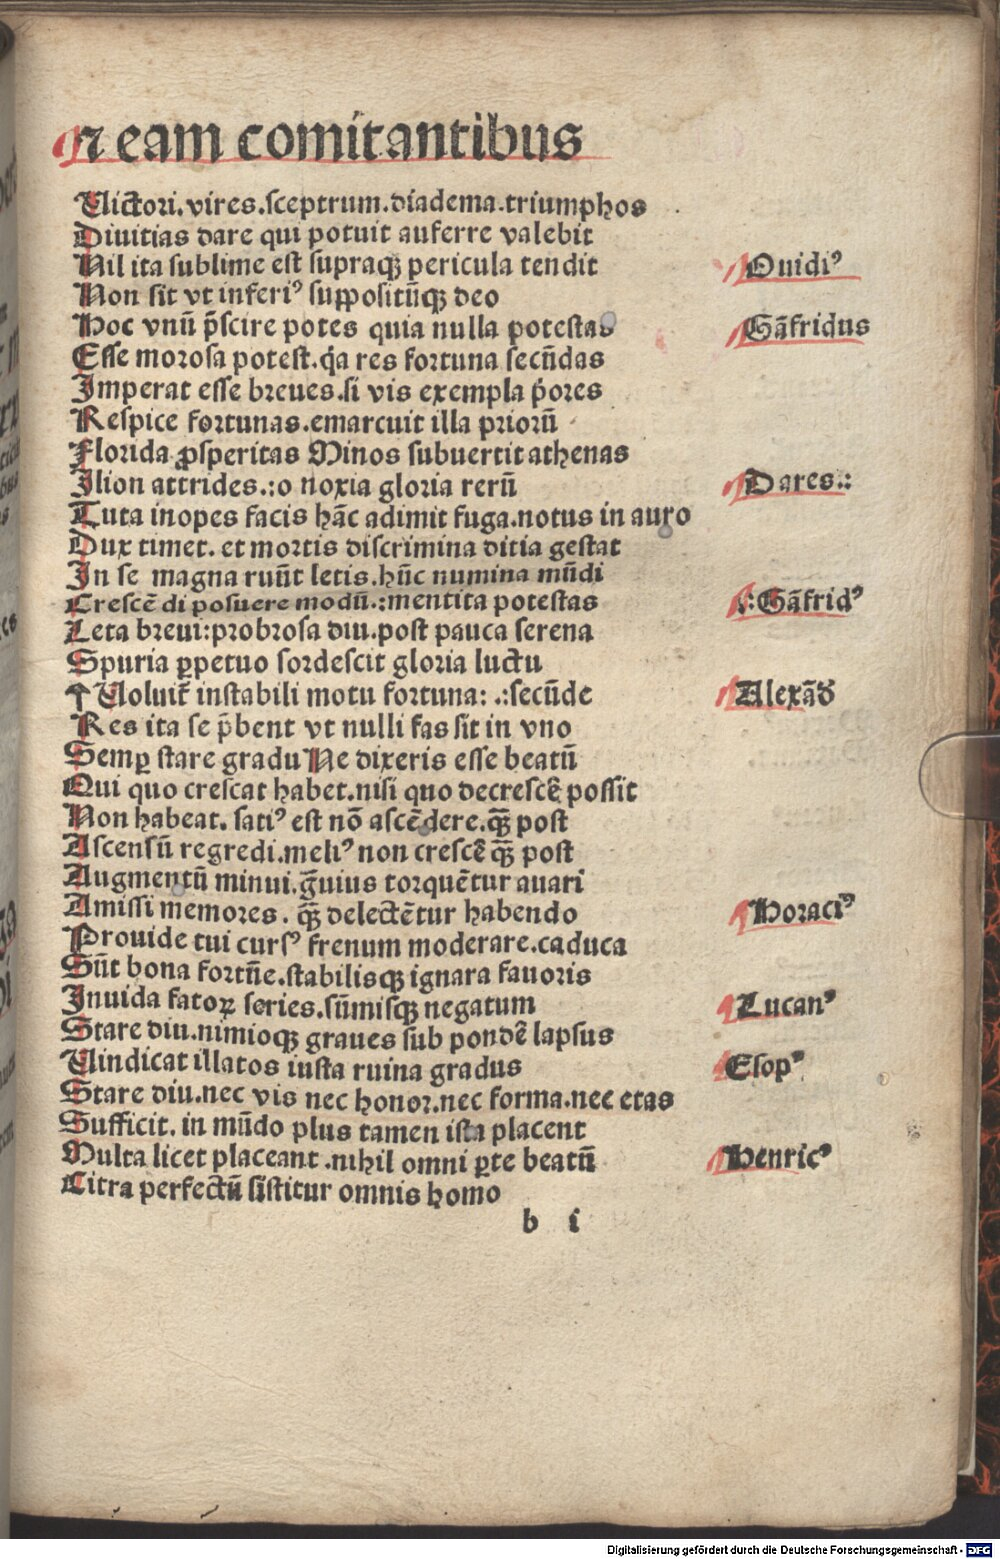 ⁊ eam comitantibus
Uictori.vires.sceptrum.diadema.triumphos
Diuitias dare qui potuit auferre valebit
Nil ita sublime est supraqꝫ pericula tendit Ouidiꝰ
Non sit vt inferiꝰ suppositūqꝫ deo
Hoc vnū p̄scire potes quia nulla potestas Gāfridus
Esse morosa potest.q̇a res fortuna secūdas
Imperat esse breues.si vis exempla p̓ores
Respice fortunas.emarcuit illa priorū
Florida ꝓsperitas Minos subuertit athenas
Ilion attrides.:o noxia gloria rerū Dares.:
Tuta inopes facis hāc adimit fuga.notus in auro
Dux timet. et mortis discrimina ditia gestat
In se magna ruūt letis.hūc numina mūdi
Crescē di posuere modū.:mentita potestas .:Gāfridꝰ
Leta breui:probrosa diu.post pauca serena
Spuria ꝑpetuo sordescit gloria luctu
Uoluit̄ instabili motu fortuna: .:secūde Alexād̄
Res ita se p̄bent vt nulli fas sit in vno
Semꝑ stare gradu Ne dixeris esse beatū
Qui quo crescat habet.nisi quo decrescē possit
Non habeat. satiꝰ est nō ascēdere.qꝫ̄ post
Ascensū regredi.meliꝰ non crescē qꝫ̄ post
Augmentū minui.g̅uius torquētur auari
Amissi memores. qꝫ̄ delectētur habendo Horaciꝰ
Prouide tui cursꝰ frenum moderare.caduca
Sūt bona fortūe.stabilisqꝫ ignara fauoris
Inuida fatoꝝ series.sūmisqꝫ negatum Lucanꝰ
Stare diu.nimioqꝫ graues sub pondē lapsus
Uindicat illatos iusta ruina gradus Esopꝰ
Stare diu.nec vis nec honor.nec forma.nec etas
Sufficit. in mūdo plus tamen ista placent
Multa licet placeant .nihil omni ꝑte beatū Henricꝰ
Citra perfectū sistitur omnis homo
b i
Digitalisierung gefördert durch die Deutsche Forschungsgemeinschaft - DFG